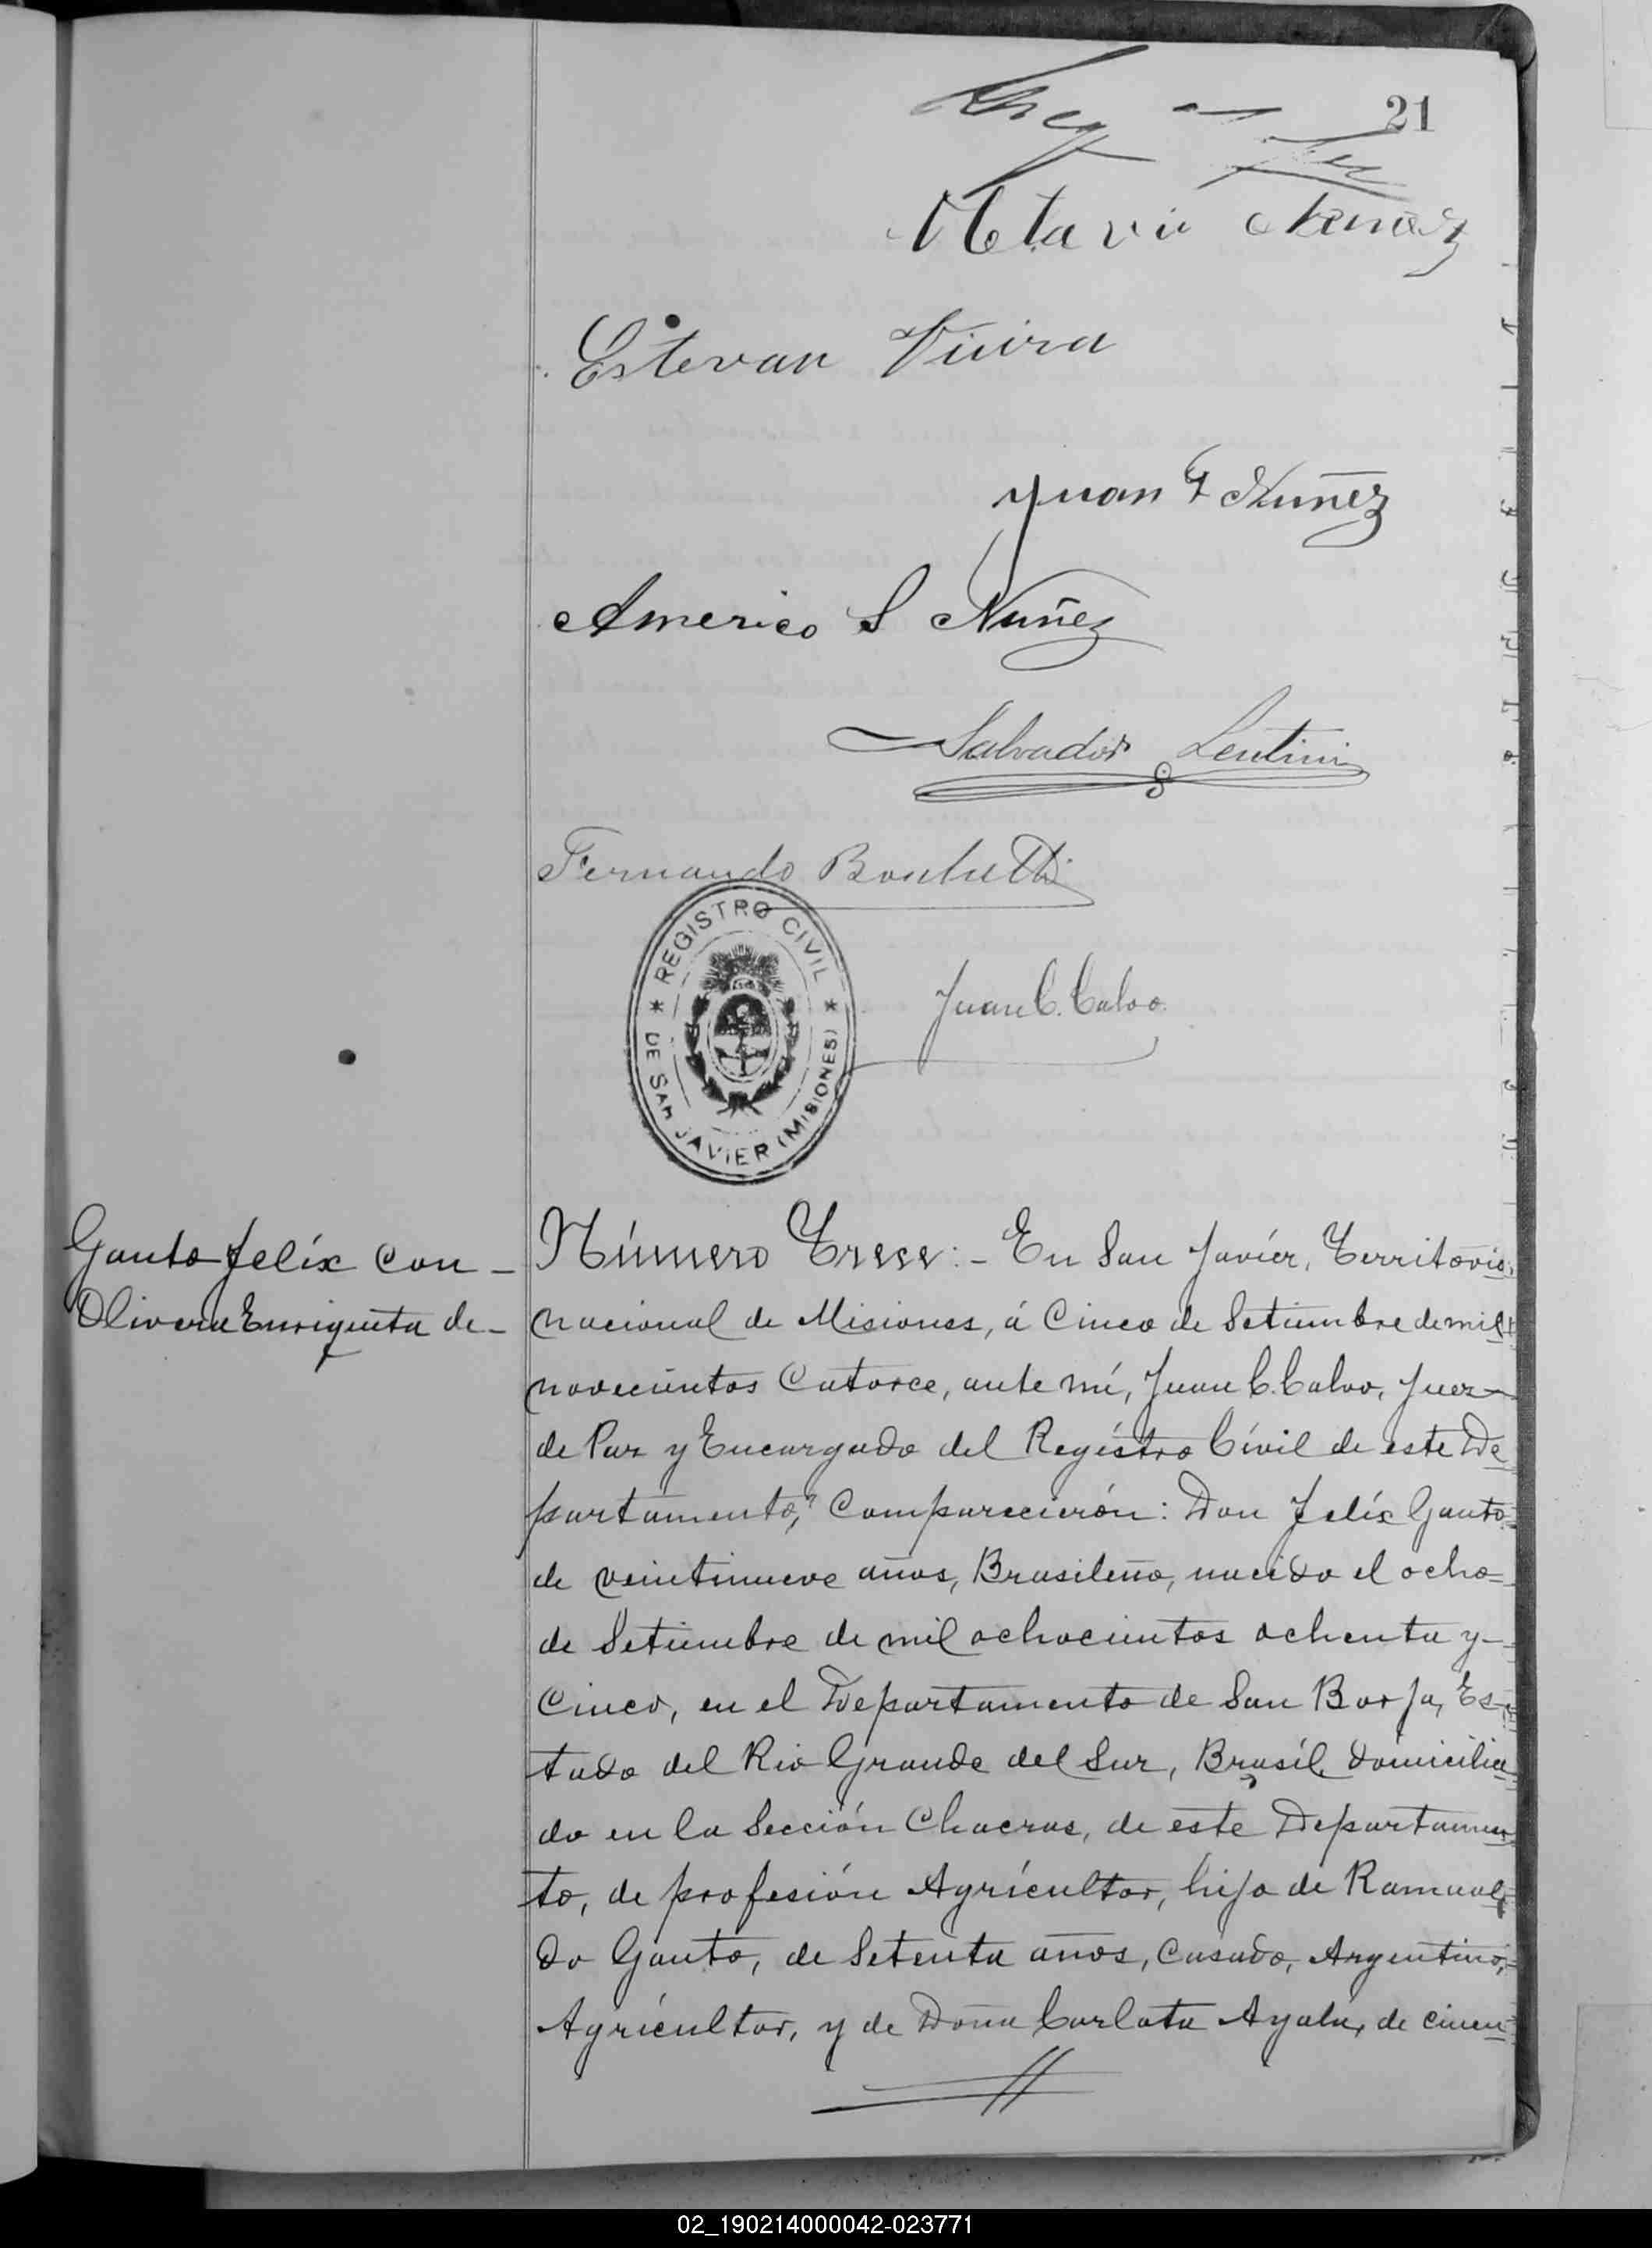 21
Estevan Vieira
Juan F Nuñez
Americo S Nuñez
Salvador Lentini
Fernando
REGISTRO CIVIL
DE SAN JAVIER (MISIONES)
Juan C. Calvo.
Gauto Felíx con -
Olivera Enriqueta de -
Número Trece: - En San Javíer, Territorio
nacional de Misiones, á Cinco de Setiembre de mil
novecientos Catorce, ante mí, Juan C. Calvo, Juez
de Paz y Encargado del Regístro Cívil de este De
partamento, Comparecierón: Don Felíx Gauto
de veintinueve años, Brasileño, nacido el ocho
de Setiembre de mil ochocientos ochenta y -
Cinco, en el Departamento de San Borja, Es-
tado del Rio Grande del Sur, Brasíl, domicilia
do en la Sección Chacras, de este Departamen
to, de profesión Agrícultor, hijo de Ramual
do Gauto, de Setenta años, Casado, Argentino,
Agrícultor, y de Doña Carlota Ayala, de cincu
02_190214000042-023771